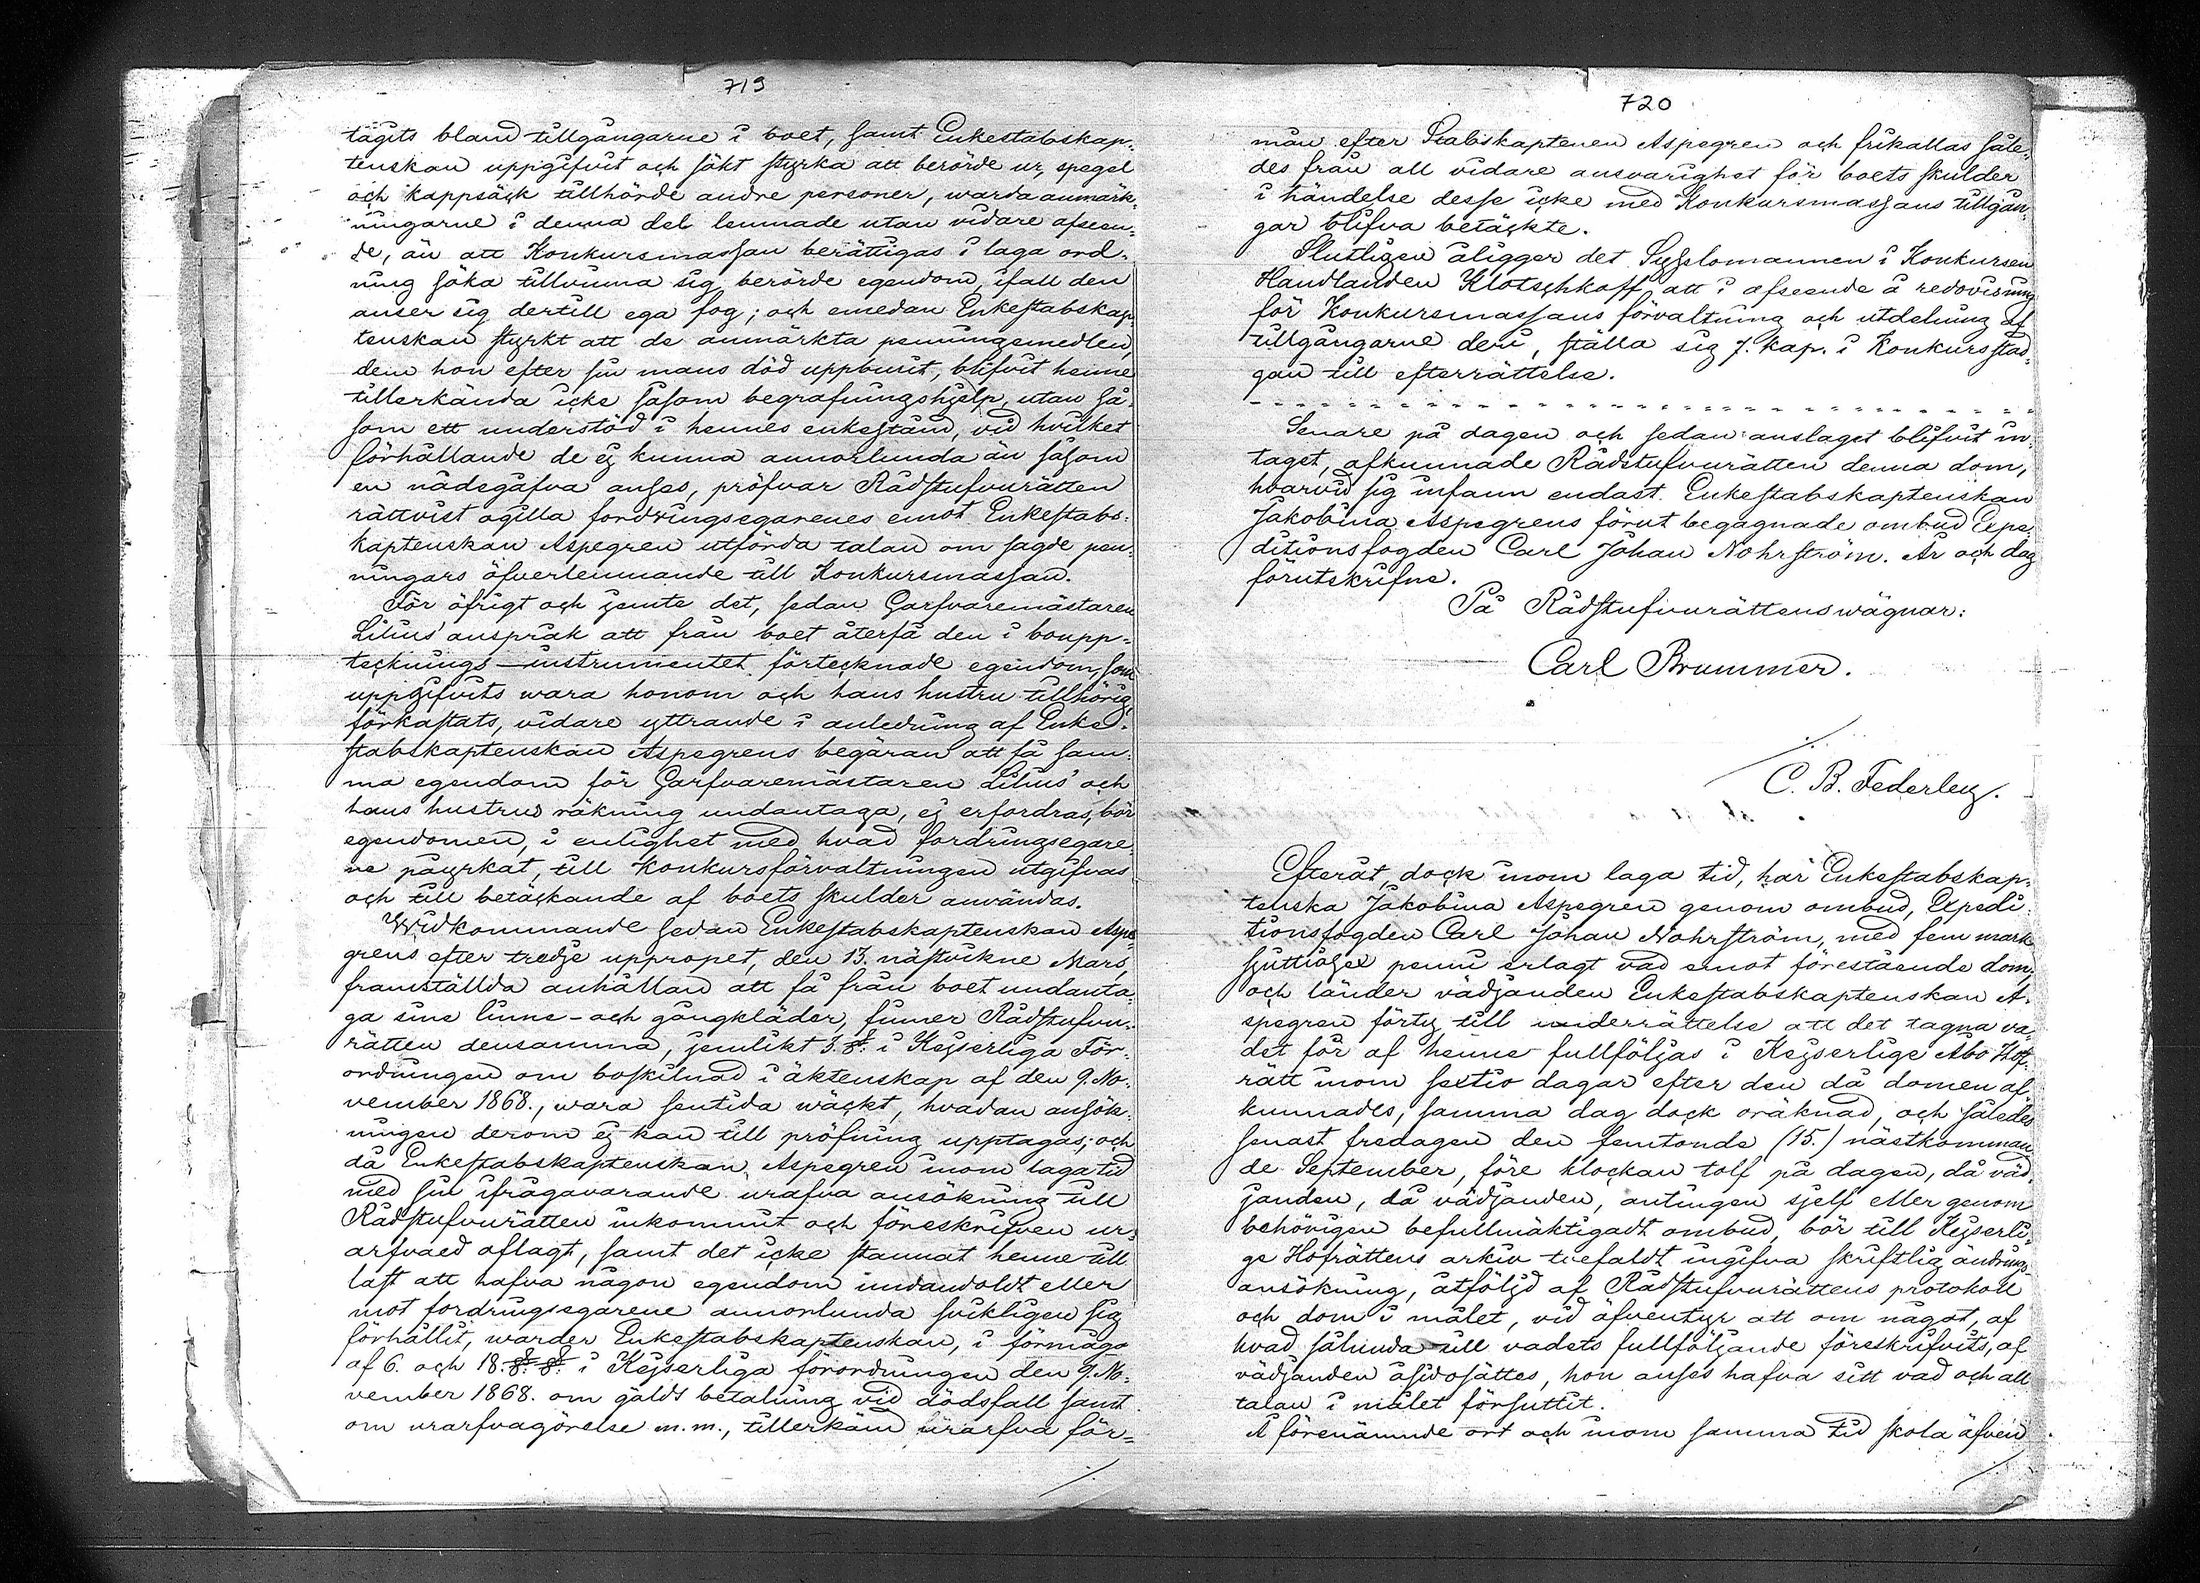 719
tagits bland tillgångarne i boet, samt Enkestabskap-
tenskan uppgifvit och sökt styrka att berörde ur, spegel
och kappsäck tillhörde andre personer, warda anmärk-
ningarne i denna del lemnade utan vidare afseen-
de, än att Konkursmassan berättigas i laga ord-
ning söka tillvinna sig berörde egendom, ifall den
anser sig dertill ega fog; och emedan Enkestabskap-
tenskan styrkt att de anmärkta penningemedlen,
dem hon efter sin mans död uppburit, blifvit henne
tillerkända icke såsom begrafningshjelp, utan så-
som ett understöd i hennes enkestånd, vid hvilket
förhållande de ej kunna annorlunda än såsom
en nådegåfva anses, pröfvar Rådstufvurätten
rättvist ogilla fordringsegarenes emot Enkestabs-
kaptenskan Aspegren utförda talan om sagde pen-
ningars öfverlemnande till Konkursmassan.
För öfrigt och jemte det, sedan Garfvaremästaren
Lilius' anspråk att från boet återfå den i boupp-
tecknings-instrumentet förtecknade egendom, som
uppgifvits wara honom och hans hustru tillhörig,
förkastats, vidare yttrande i anledning af Enke-
stabskaptenskan Aspegrens begäran att få sam-
ma egendom för Garfvaremästaren Lilius' och
hans hustrus räkning undantaga, ej erfordras, bör
egendomen, i enlighet med hvad fordringsegare-
ne påyrkat, till konkursförvaltningen utgifvas
och till betäckande af boets skulder användas.
Widkommande sedan Enkestabskaptenskan Aspe-
grens efter tredje uppropet, den 13. nästvikne Mars,
framställda anhållan att få från boet undanta-
ga sine linne- och gångkläder, finner Rådstufvu-
rätten densamma, jemlikt 3. §. i Kejserliga För-
ordningen om boskilnad i äktenskap af den 9. No-
vember 1868., wara sentida wäckt, hvadan ansök-
ningen derom ej kan till pröfning upptagas; och
då Enkestabskaptenskan Aspegren inom laga tid
med sin ifrågavarande urarfva ansökning till
Rådstufvurätten inkommit och föreskrifven ur-
arfvaed aflagt, samt det icke stannat henne till
last att hafva någon egendom undandoldt eller
mot fordringsegarene annorlunda svikligen sig
förhållit, warder Enkestabskaptenskan, i förmågo
af 6. och 18. §. §. i Kejserliga förordningen den 9. No-
vember 1868. om gälds betalning vid dödsfall samt
om urarfvagörelse m.m., tillerkänd urarfva för-
720
mån efter Stabskaptenen Aspegren och frikallas såle-
des från all vidare ansvarighet för boets skulder
i händelse desse icke med Konkursmassans tillgån-
gar blifva betäckte.
Slutligen åligger det Sysslomannen i Konkursen
Handlanden Klotschkoff att i afseende å redovisning
för Konkursmassans förvaltning och utdelning af
tillgångarne deri, ställa sig 7. kap. i Konkursstad-
gan till efterrättelse.
Senare på dagen och sedan anslaget blifvit in-
taget, afkunnade Rådstufvurätten denna dom,
hvarvid sig infann endast Enkestabskaptenskan
Jakobina Aspegrens förut begagnade ombud Expe-
ditionsfogden Carl Johan Nohrström. År och dag
förutskrifne.
På Rådstufvurättens wägnar:
Carl Brummer.
C. B. Federley.
Efteråt, dock inom laga tid, har Enkestabskap-
tenska Jakobina Aspegren genom ombud, Expedi-
tionsfogden Carl Johan Nohrström, med fem mark
sjuttiosex penni erlagt vad emot förestående dom;
och länder vädjanden Enkestabskaptenskan A-
spegren förty till underrättelse att det tagna va-
det för af henne fullföljas i Kejserlige Åbo Hof-
rätt inom sextio dagar efter den då domen af-
kunnades, samma dag dock oräknad, och således
senast fredagen den femtonde (15.) nästkomman-
de September, före klockan tolf på dagen, då väd-
janden, då vädjanden, antingen sjelf eller genom
behörigen befullmäktigadt ombud, bör till Kejserli-
ge Hofrättens arkiv trefaldt ingifva skriftlig ändrings-
ansökning, åtföljd af Rådstufvurättens protokoll
och dom i målet, vid äfventyr att om något, af
hvad sålunda till vadets fullföljande föreskrifvits, af
vädjanden åsidosättes, hon anses hafva sitt vad och all
talan i målet försuttit.
Å förenämnde ort och inom samma tid skola äfven